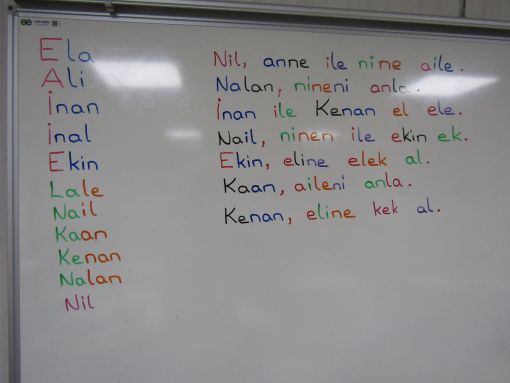 Ela
Ali
İnan
İnal
Ekin
Lale
Nail
Kaan
Kenan
Nalan
Nil
Nil, anne ile nine aile.
Nalan, nineni anla.
İnan ile Kenan el ele.
Nail, ninen ile ekin ek.
Ekin, eline elek al.
Kaan, aileni anla.
Kenan, eline kek al.